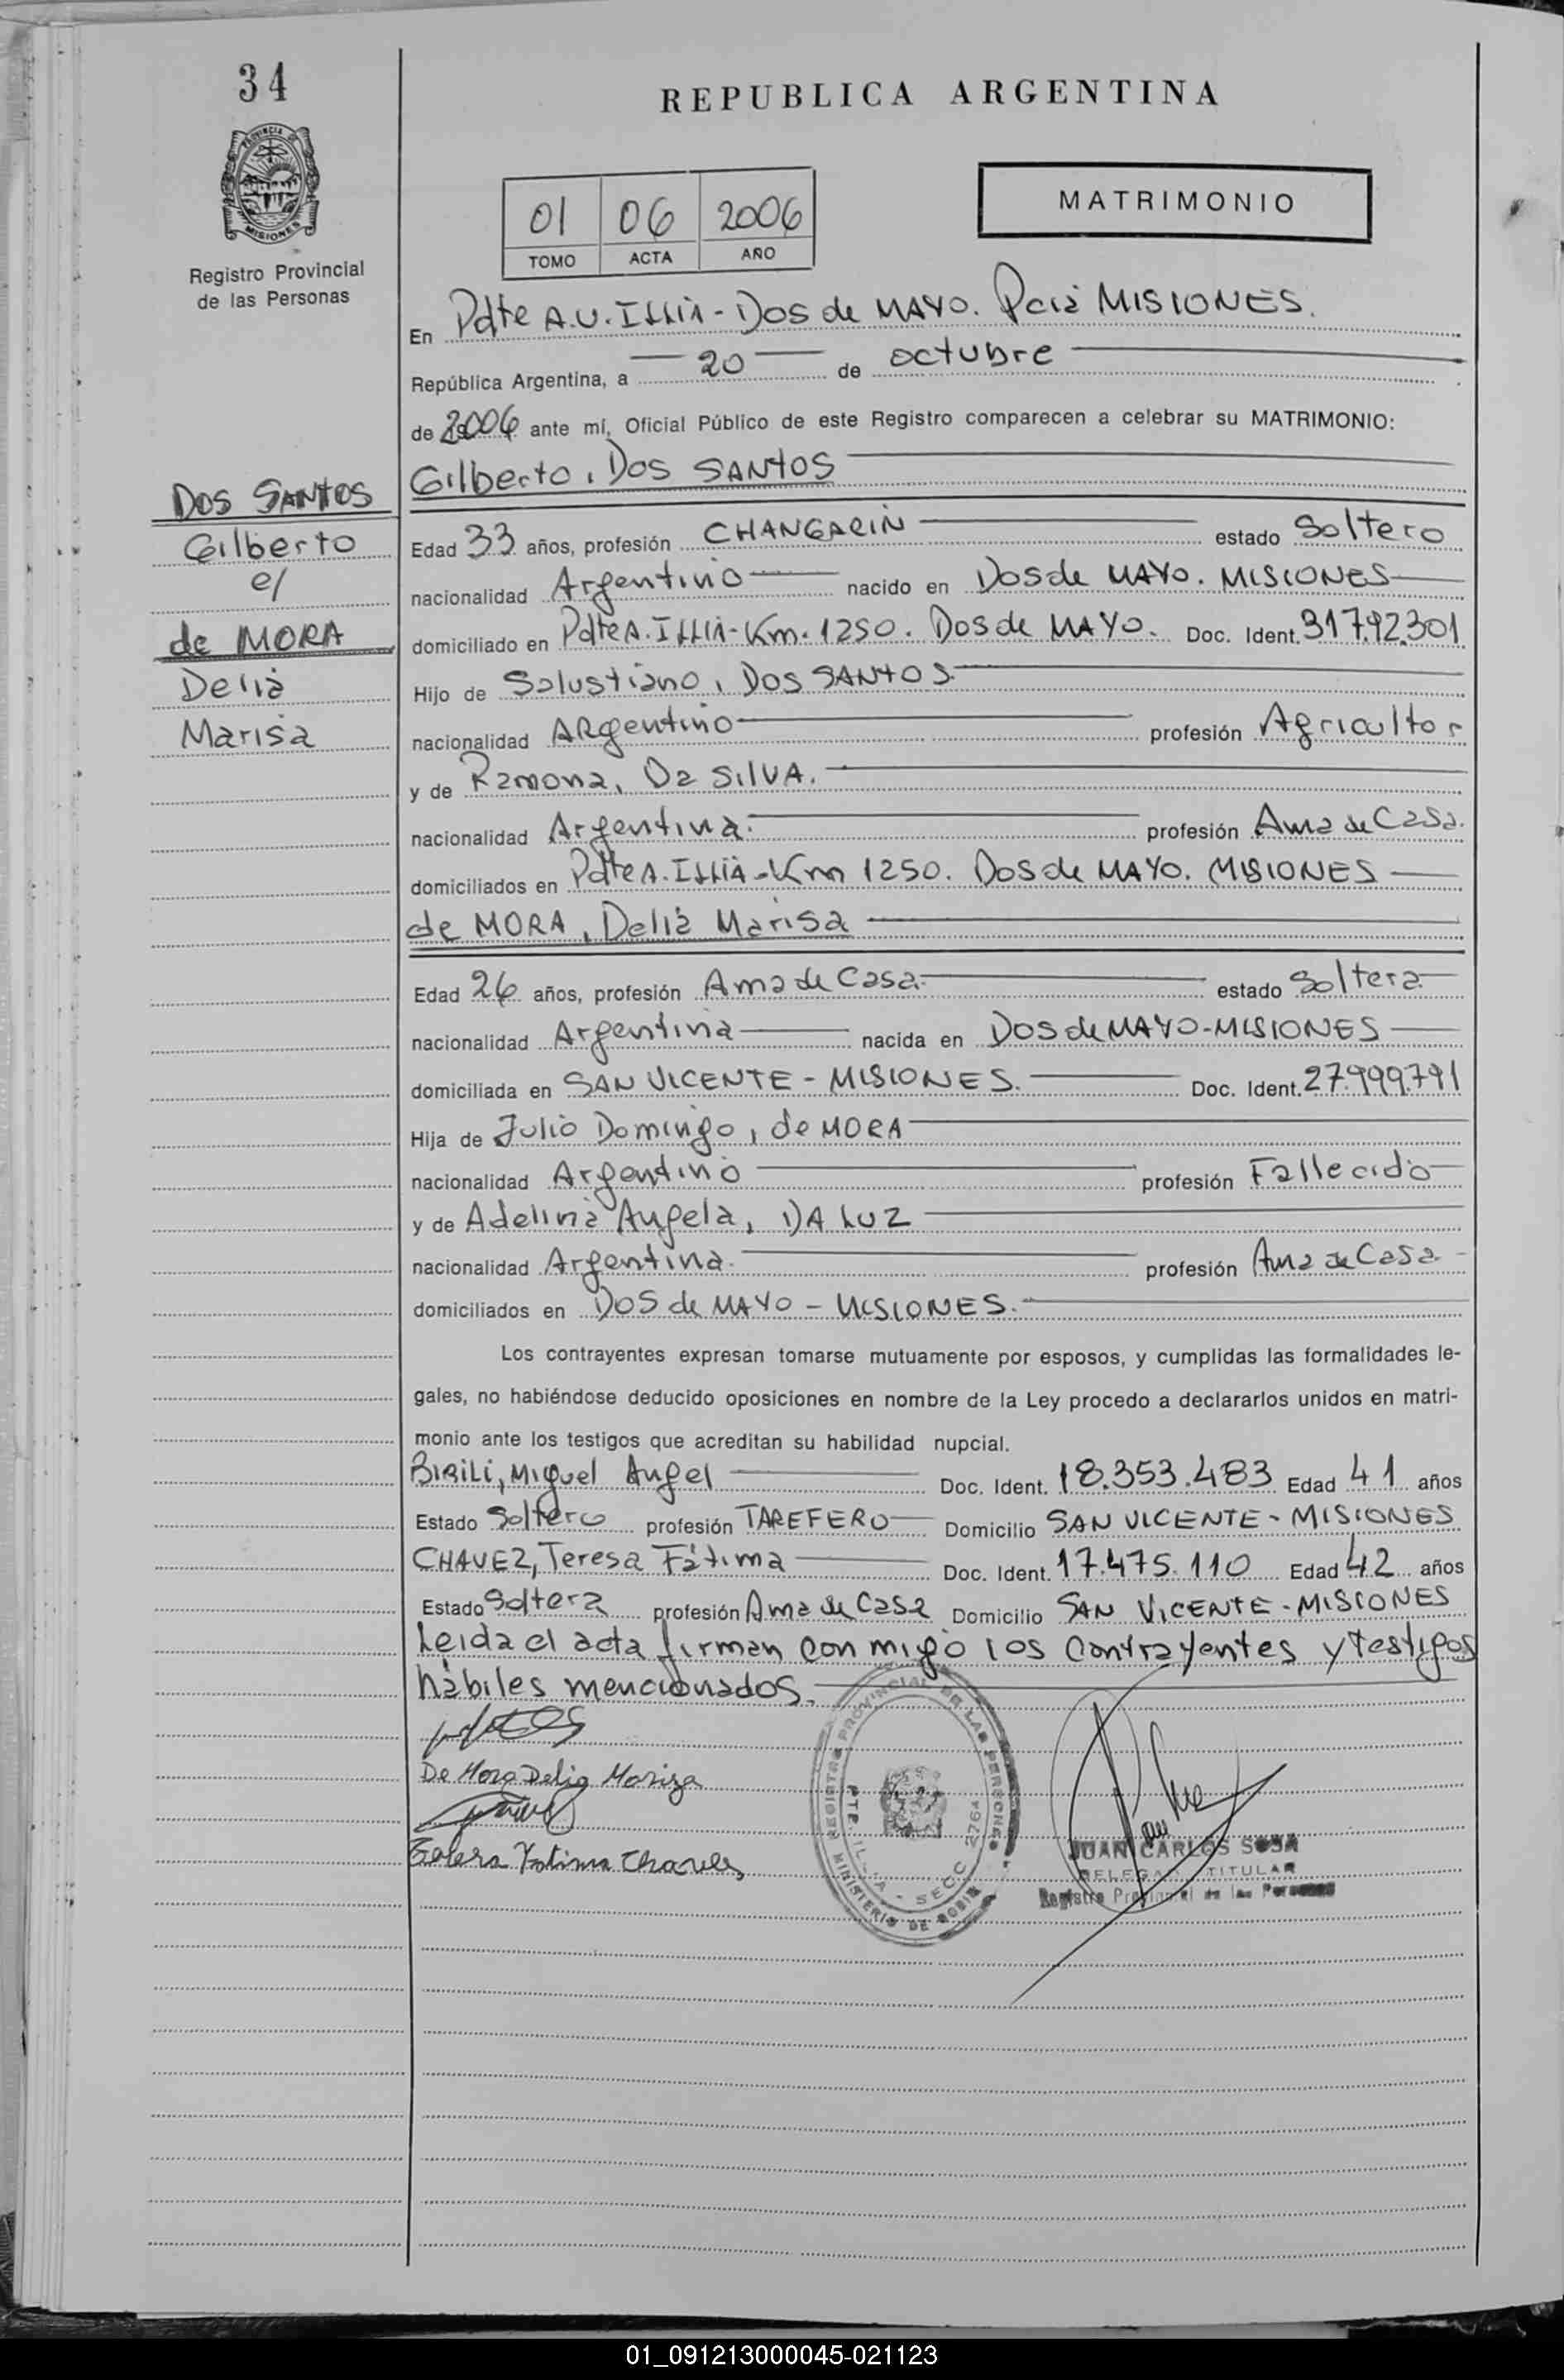 34
REPUBLICA ARGENTINA
PROVINCIA DE
MISIONES
Registro Provincial
de las Personas
MATRIMONIO
01 06 2006
TOMO ACTA AÑO
En Pdte A.U. Illia - Dos de MAYO. Pcia MISIONES.
República Argentina, a 20 de octubre
de 2006 ante mí, Oficial Público de este Registro comparecen a celebrar su MATRIMONIO:
Gilberto, Dos SANTOS
DOS SANTOS
Gilberto
c/
de MORA
Delia
Marisa
Edad 33 años, profesión CHANGARIN estado Soltero
nacionalidad Argentino nacido en Dos de MAYO. MISIONES
domiciliado en Pdte A. Illia - Km. 1250. Dos de MAYO. Doc. Ident. 31792.301
Hijo de Salustiano, Dos SANTOS.
nacionalidad ARgentino profesión Agricultor
y de Ramona, Da SilVA.
nacionalidad Argentina. profesión Ama de Casa.
domiciliados en Pdte A. Illia - Km 1250. Dos de MAYO. MISIONES
de MORA, Delia Marisa
Edad 26 años, profesión Ama de Casa. estado Soltera
nacionalidad Argentina nacida en DOS de MAYO - MISIONES
domiciliada en SAN VICENTE - MISIONES. Doc. Ident. 27.999.791
Hija de Julio Domingo, de MORA
nacionalidad Argentino profesión Fallecido
y de Adelina Angela, DA LUZ
nacionalidad Argentina. profesión Ama de Casa
domiciliados en DOS de MAYO - MISIONES.
Los contrayentes expresan tomarse mutuamente por esposos, y cumplidas las formalidades le-
gales, no habiéndose deducido oposiciones en nombre de la Ley procedo a declararlos unidos en matri-
monio ante los testigos que acreditan su habilidad nupcial.
BIRILI, Miguel Angel Doc. Ident. 18.353.483 Edad 41 años
Estado Soltero profesión TAREFERO Domicilio SAN VICENTE - MISIONES
CHAVEZ, Teresa Fátima Doc. Ident. 17.475.110 Edad 42 años
Estado Soltera profesión Ama de Casa Domicilio SAN VICENTE - MISIONES
Leida el acta firman con migo los contrayentes y testigos
hábiles mencionados.
De Mora Delia Mariza
Fatima Chavez
REGISTRO PROVINCIAL DE LAS PERSONAS
MINISTERIO DE GOBIE
SECC 2764
JUAN CARLOS SOSA
TITULAR
Registro Provincial de las Personas
01_091213000045-021123